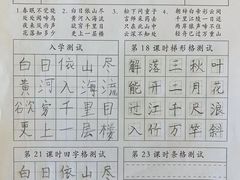 1. 春眠不觉晓 2. 白日依山尽 3. 松下问童子 4. 解落三秋叶
处处闻啼鸟 黄河入海流 言师采药去 能开二月花
夜来风雨声 欲穷千里目 只在此山中 过江千尺浪
花落知多少 更上一层楼 云深不知处 入竹万竿斜
入学测试
白日依山尽
黄河入海流
欲穷千里目
更上一层楼
第18课时梯形格测试
解落三秋叶
能开二月花
过江千尺浪
入竹万竿斜
第21课时田字格测试
白日依山尽
第23课时条格测试